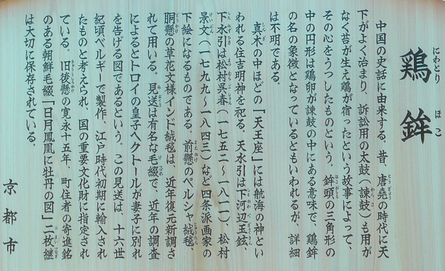 鶏鉾
にわとり ほこ
中国の史話に由来する。昔、唐堯の時代に天
下がよく治まり、訴訟用の太鼓（諫鼓）も用が
なく苔が生え鶏が宿ったという故事によって、
その心をうつしたものという。鉾頭の三角形の
中の円形は鶏卵が諫鼓の中にある意味で、鶏鉾
の名の象徴となっているともいわれるが、詳細
は不明である。
真木の中ほどの「天王座」には航海の神とい
われる住吉明神を祀る。天水引は下河辺玉鉉、
下水引は松村呉春（一七五二〜一八一一）、松村
景文（一七七九〜一八四三）など四条派画家の
下絵になるものである。前懸のペルシャ絨毯、
胴懸の草花文様インド絨毯は、近年復元新調さ
れて用いる。見送は有名な毛綴で、近年の調査
によるとトロイの皇子ヘクトールが妻子に別れ
を告げる図であるという。この見送は、十六世
紀頃ベルギーで製作、江戸時代初期に輸入され
たものと考えられ、国の重要文化財に指定され
ている。旧後懸の寛永十五年、町住者の寄進銘
のある朝鮮毛綴「日月鳳凰に牡丹の図」二枚継
は大切に保存されている。
京都市